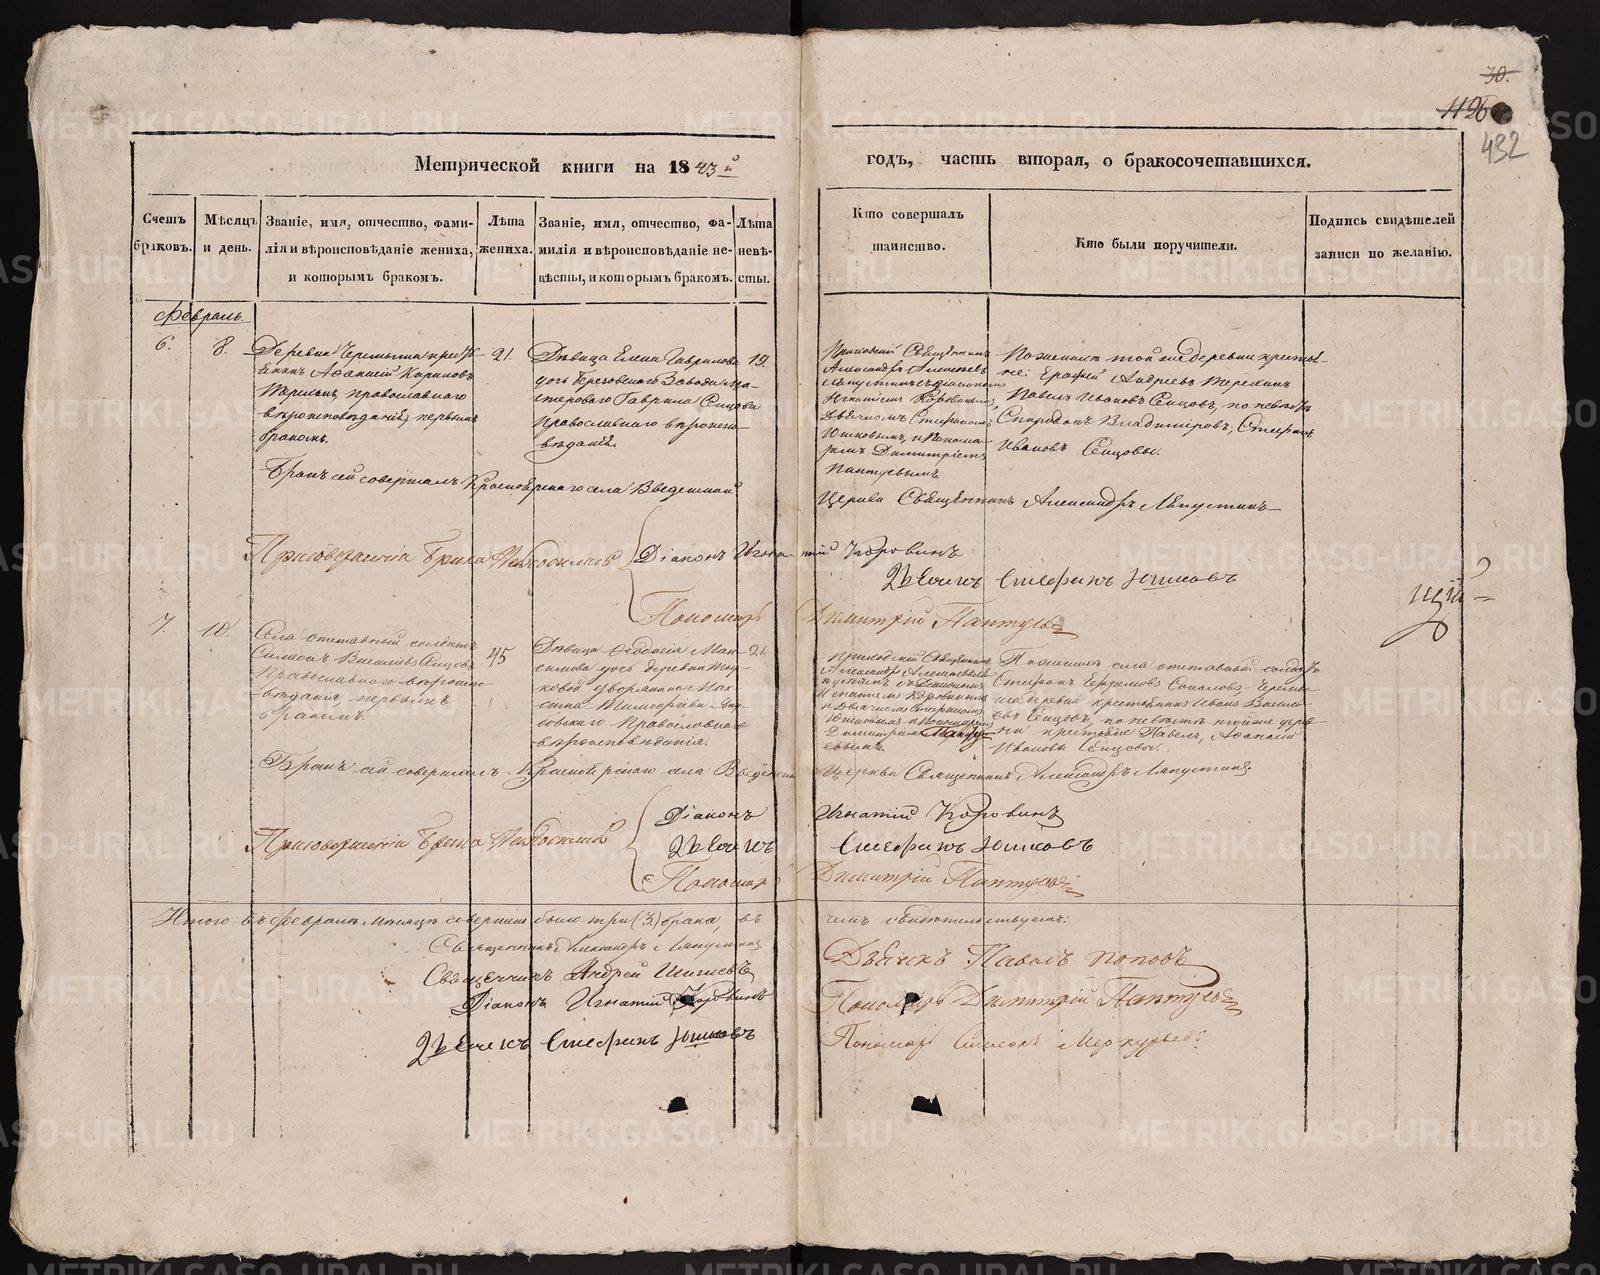 30.
1126
432
Метрической книги на 1843й
годъ, часть вторая, о бракосочетавшихся.
Счетъ браковъ.
Мѣсяцъ и день.
Званіе, имя, отчество, фами-
лія и вѣроисповѣданіе жениха,
и которымъ бракомъ.
Лѣта
жениха.
Званіе, имя, отчество, фа-
милія и вѣроисповѣданіе не-
вѣсты, и которымъ бракомъ.
Лѣта
невѣ-
сты.
Кто совершалъ
таинство.
Кто были поручители.
Подпись свидѣтелей
записи по желанію.
Февраль.
6.
8.
Деревни
Аѳанасій Кириловъ
православнаго
вѣроисповѣданія, первымъ
бракомъ.
21.
Дѣвица Елена Гаврилова
дочь Березовскаго Завода ма-
стероваго Гаврила Сенцова
православнаго вѣроиспо-
вѣданія.
19.
Приходскій Священникъ
Александръ Алексѣевъ
Лапустинъ съ діакономъ
Игнатіемъ Коровинымъ,
Дьячкомъ Стефаномъ
Юшковымъ, и Понома-
ремъ Димитріемъ
Пантуевымъ
По женихѣ той же деревни кресть-
не: Андреевъ
Павелъ Ивановъ Сенцовъ, по невѣстѣ
Спиридонъ Владиміровъ, Стефанъ
Ивановъ Сенцовы.
Бракъ сей совершалъ Красноярскаго села Введенской
Церкви Священникъ Александръ Лапустинъ
Діаконъ Игнатій Коровинъ
Дьячекъ Стефанъ Юшковъ
Пономарь Димитрій Пантуевъ
7.
10.
Села отставный солдатъ
Симеонъ Васильевъ Сенцовъ
Православнаго вѣроиспо-
вѣданія, первымъ
бракомъ.
45
Дѣвица Ѳедосія Мак-
симова дочь деревни
Православнаго
вѣроисповѣданія.
21.
Приходскій Священникъ
Александръ Алексѣевъ
съ Діакономъ
Игнатіемъ Коровинымъ
и Дьячкомъ Стефаномъ
Юшковымъ и Пономаремъ
Димитріемъ Панту-
евымъ.
По женихѣ села отставный солдатъ
Стефанъ Ефремовъ Соколовъ,
деревни крестьянинъ Иванъ Василь-
евъ Сенцовъ, по невѣстѣ той же дерев-
ни крестьяне Павелъ, Аѳанасій
Ивановы Сенцовы.
Бракъ сей совершалъ Красноярскаго села Введенской
Церкви Священникъ Александръ Лапустинъ.
Діаконъ Игнатій Коровинъ
Дьячекъ Стефанъ Юшковъ
Пономарь Димитрій Пантуевъ
Итого въ февралѣ мѣсяцѣ совершено было три (3) брака, въ
чемъ свидѣтельствуемъ:
Священникъ Александръ Лапустинъ
Священникъ Андрей
Діаконъ Игнатій Коровинъ
Дьячекъ Стефанъ Юшковъ
Дьячекъ Павелъ Поповъ
Пономарь Димитрій Пантуевъ
Пономарь Симеонъ Меркурьевъ
METRIKI.GASO-URAL.RU